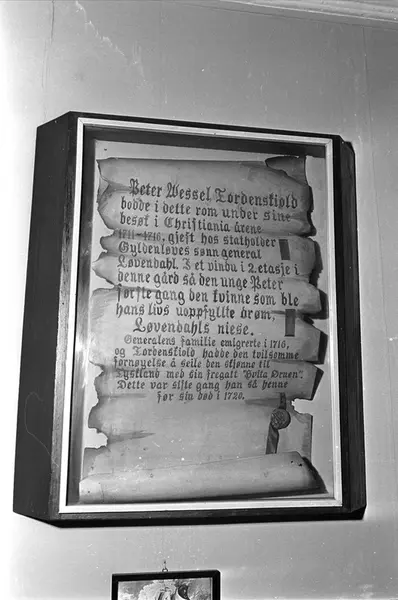 Peter Wessel Tordenskiold
bodde i dette rom under sine
besøk i Christiania årene
1711-1716, gjest hos statholder
Gyldenløves sønn general
Løvendahl. I et vindu i 2. etasje i
denne gård så den unge Peter
første gang den kvinne som ble
hans livs uoppfyllte drøm,
Løvendahls niese.
Generalens familie emigrerte i 1716,
og Tordenskiold hadde den tvilsomme
fornøyelse å seile den skjønne til
Tyskland med sin fregatt "Hvita Ørnen".
Dette var siste gang han så henne
før sin død i 1720.